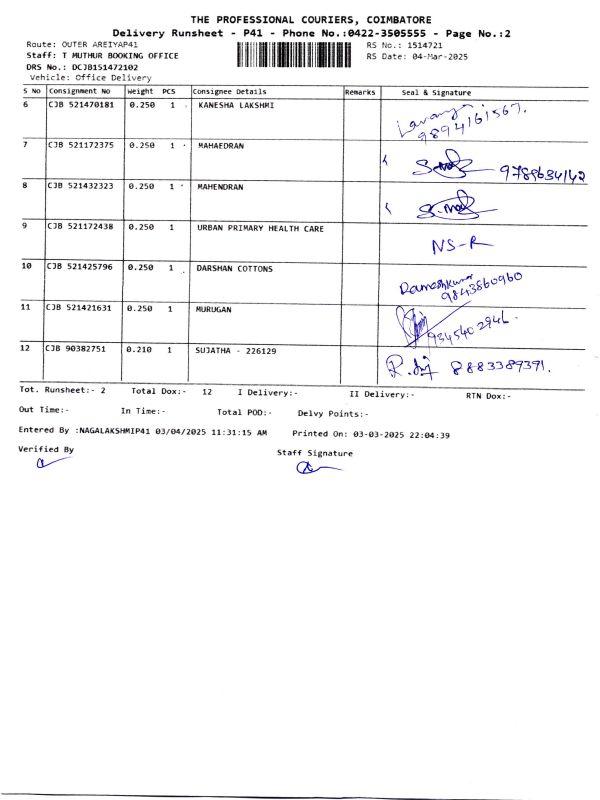 THE PROFESSIONAL COURIERS, COIMBATORE
Delivery Runsheet - P41 - Phone No.:0422-3505555 - Page No.:2
Route: OUTER AREIYAP41 RS No.: 1514721
Staff: T MUTHUR BOOKING OFFICE RS Date: 04-Mar-2025
DRS No.: DCJB151472102
Vehicle: Office Delivery
S No Consignment No Weight PCS Consignee Details Remarks Seal & Signature
6 CJB 521470181 0.250 1 KANESHA LAKSHMI Lavanya
9894161567.
7 CJB 521172375 0.250 1 MAHAEDRAN 9789634142
8 CJB 521432323 0.250 1 MAHENDRAN
9 CJB 521172438 0.250 1 URBAN PRIMARY HEALTH CARE NS-R
10 CJB 521425796 0.250 1 DARSHAN COTTONS Rameshkumar
9843860960
11 CJB 521421631 0.250 1 MURUGAN 9345402946.
12 CJB 90382751 0.210 1 SUJATHA - 226129 8883389391.
Tot. Runsheet:- 2 Total Dox:- 12 I Delivery:- II Delivery:- RTN Dox:-
Out Time:- In Time:- Total POD:- Delvy Points:-
Entered By :NAGALAKSHMIP41 03/04/2025 11:31:15 AM Printed On: 03-03-2025 22:04:39
Verified By
Staff Signature